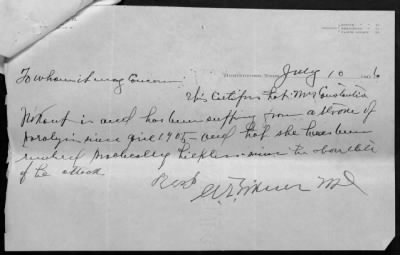 July 10
To whom it may Concern
This Certifies that Mrs Constantia
is and has been suffering from a stroke of
paralysis since 1905 and that she has been
rendered practically helpless since the above date
of the attack
Resp
M.D.